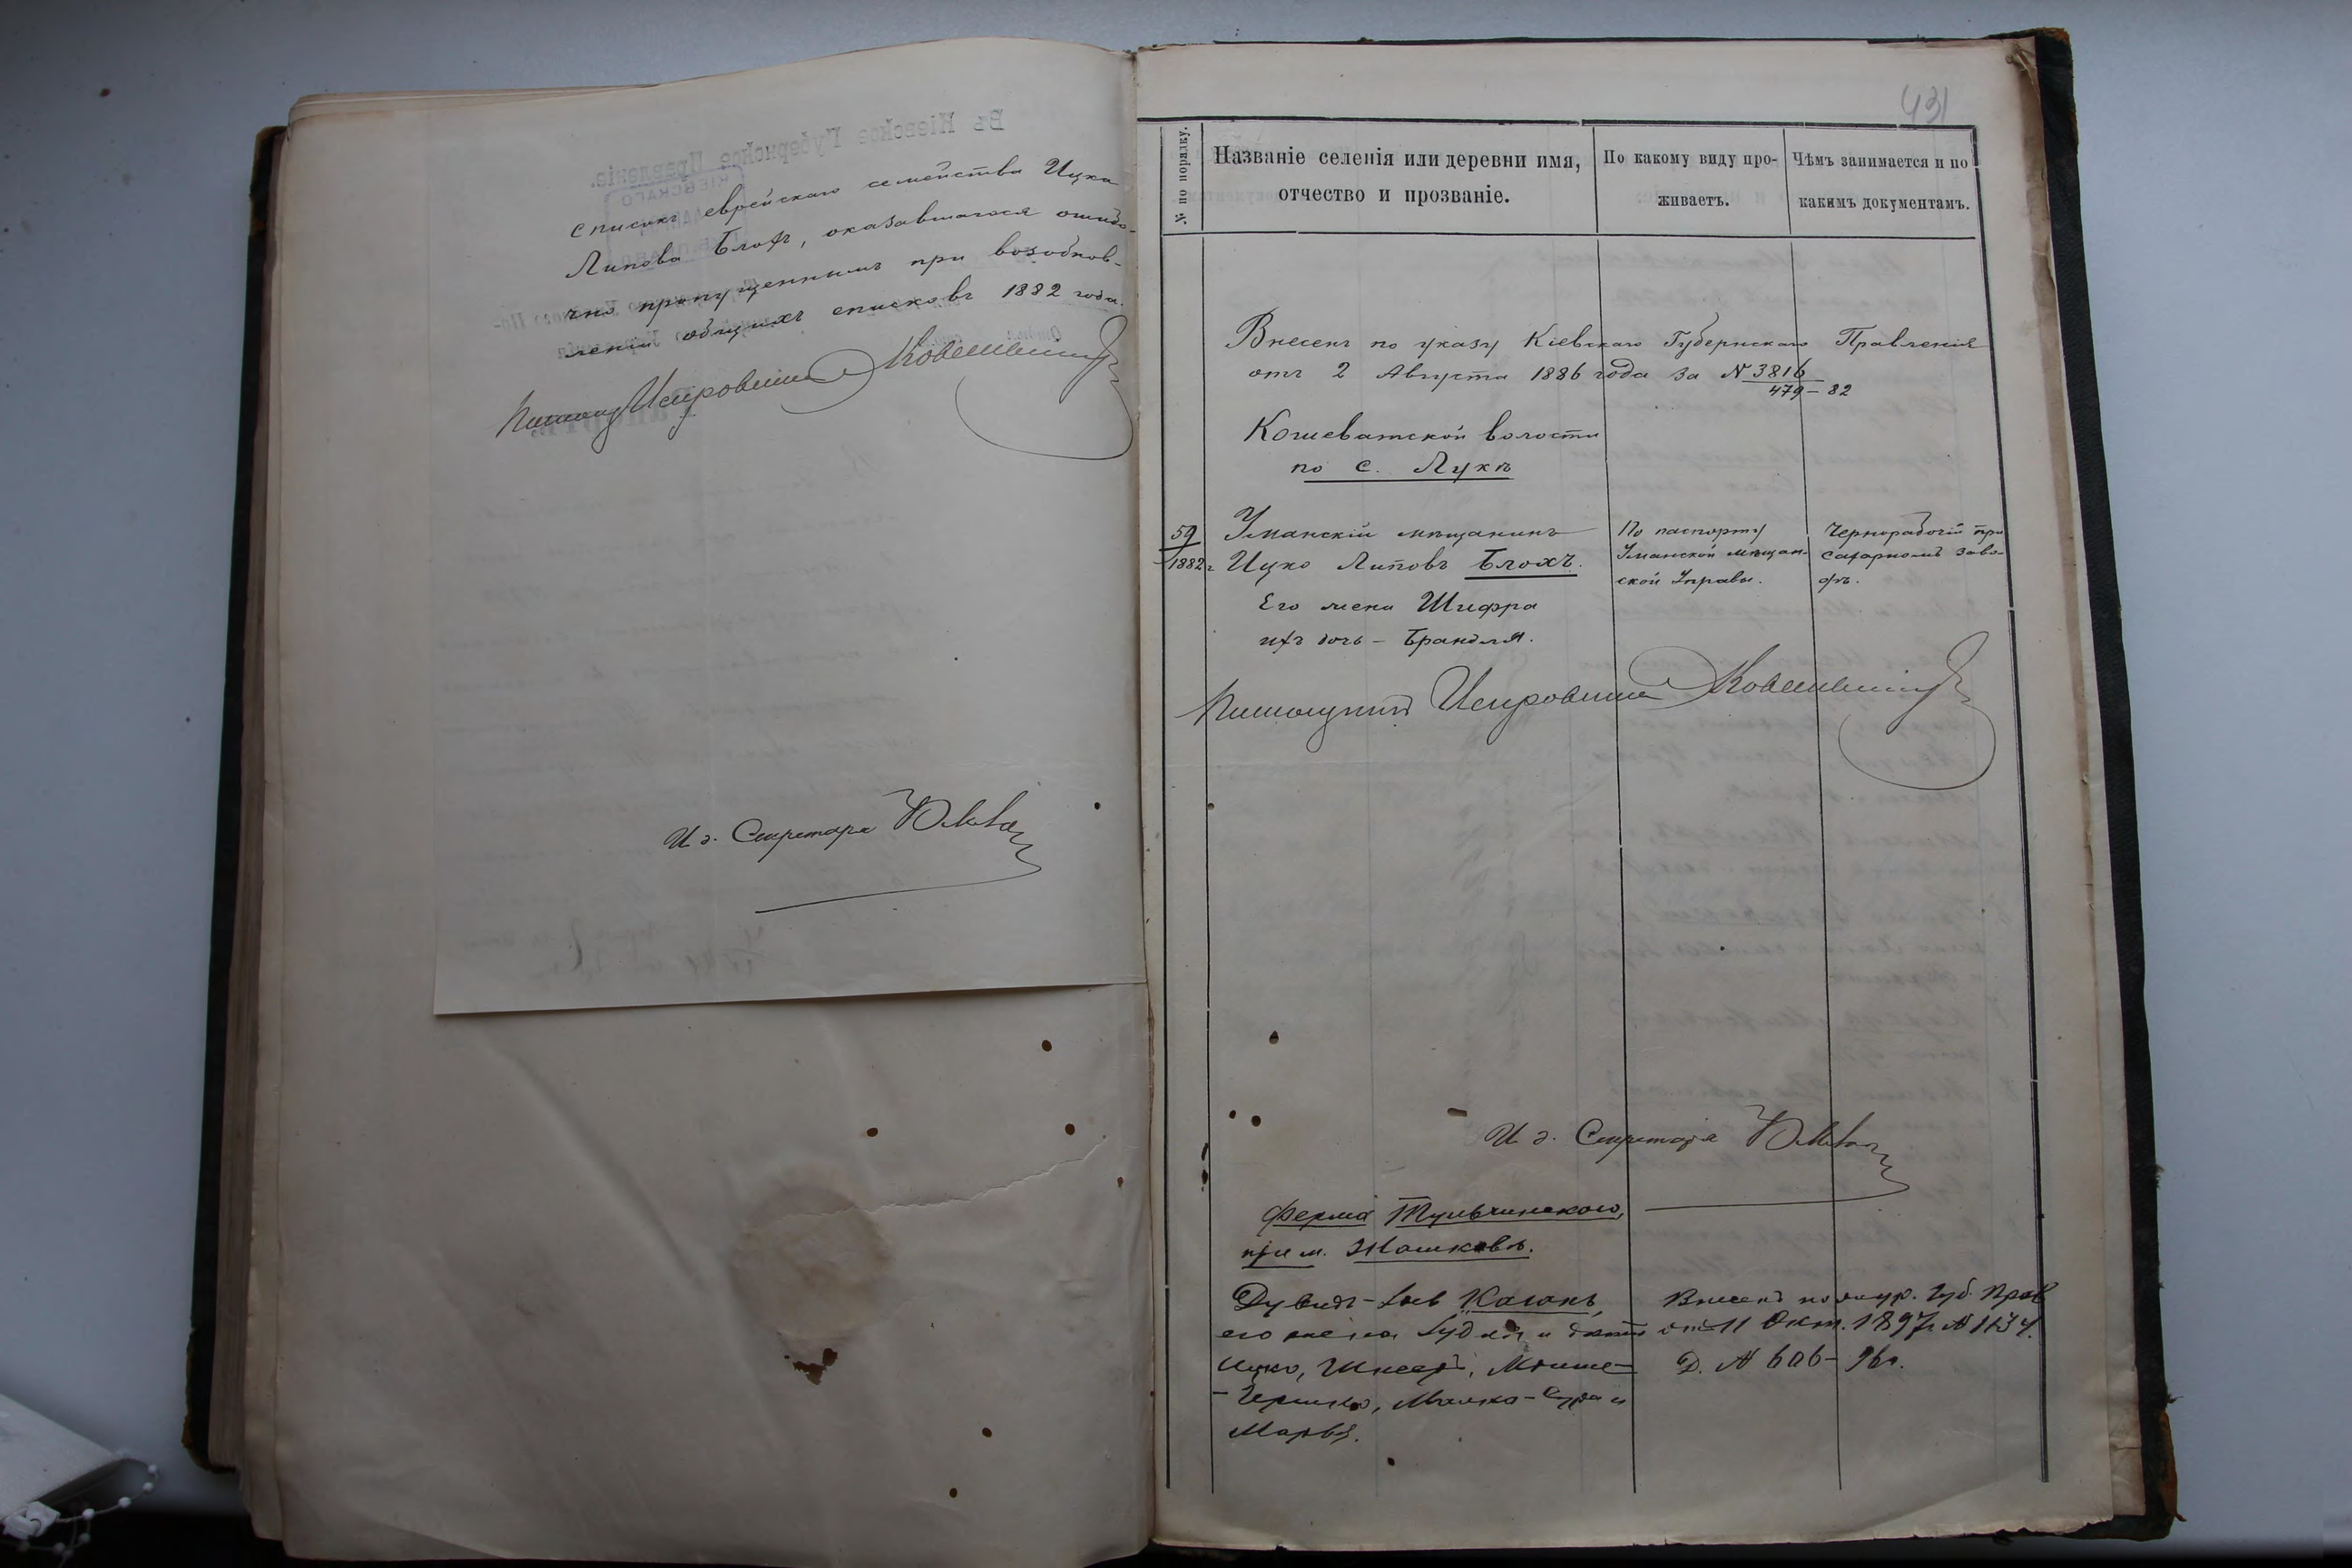 списокъ еврейскаго семейства Ицка
Липова Блохъ, оказавшагося ошибо-
чно пропущеннымъ при возобнов-
леніи общихъ списковъ 1882 года.
Исправника
И д. Секретаря
431
№ по порядку.
Названіе селенія или деревни имя,
отчество и прозваніе.
По какому виду про-
живаетъ.
Чѣмъ занимается и по
какимъ документамъ.
Внесенъ по указу Кіевскаго Губернскаго Правленія
отъ 2 Августа 1886 года за N 3816
479-82
Кошеватской волости
по с. Лукѣ
59
1882 г.
Уманскій мѣщанинъ
Ицко Липовъ Блохъ.
Его жена Шифра
ихъ дочь - Брандля.
По паспорту
Уманской мѣщан-
ской Управы.
Чернорабочій при
сахарномъ заво-
дѣ.
Исправника
И д. Секретаря
Ферма Тульчинскаго,
при м. Жашковѣ.
Дувидъ- Каганъ,
его жена и дѣти
Ицко, Мошко-
Малка-Сура и
Внесенъ по Губ. Прав
отъ 11 Окт. 1897 г. N 1134.
Д. N 606-96 г.